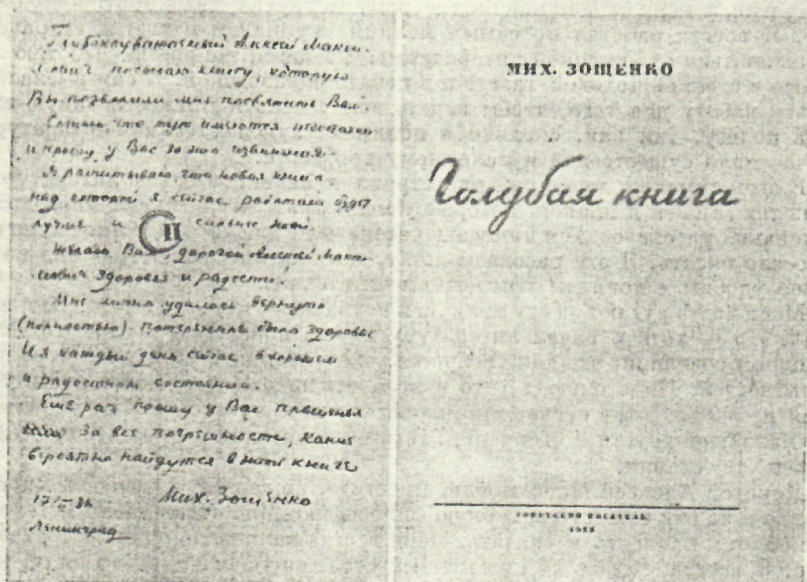 Глубокоуважаемый Алексей Макси-
мович посылаю книгу, которую
Вы позволили мне посвятить Вам.
что тут имеются недостатки
и прошу у Вас за это извинения.
Я рассчитываю, что новая книга
над которой я сейчас работаю будет
лучше и сильнее этой
П
Желаю Вам, дорогой Алексей Макси-
мович здоровья и радости!
Мне лично удалось вернуть
(полностью) потерянное было здоровье
И я каждый день сейчас в хорошем
и радостном состоянии.
Еще раз прошу у Вас прощенья
за все погрешности, какие
вероятно найдутся в этой книге
Мих. Зощенко
Ленинград
МИХ. ЗОЩЕНКО
Голубая книга
СОВЕТСКИЙ ПИСАТЕЛЬ